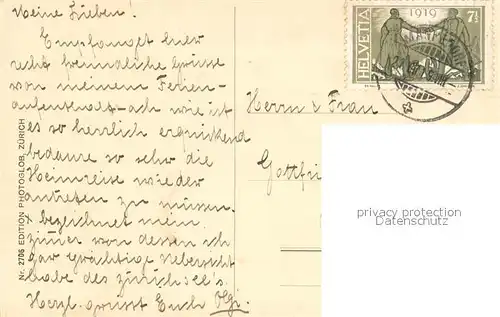 Meine Lieben!
Empfanget hier
recht freundliche Grüsse
von meinem Ferien-
aufenthalt - ach wie ist
es so herrlich erquickend
bedaure so sehr die
Heimreise wieder
antreten zu müssen.
x bezeichnet mein
Zimer von dessen ich
gar prächtige Uebersicht
habe des Zürichsee's.
Herzl. grüsst Euch
Herrn & Frau
Gottfri
HELVETIA
1919
7½
Nr. 2706 EDITION PHOTOGLOB, ZÜRICH
privacy protection
watermark